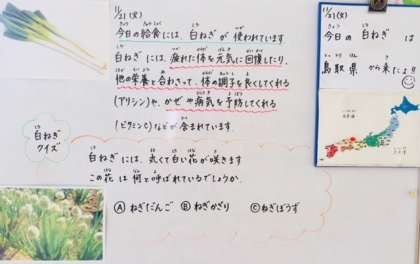 11/21(火)
今日の給食には、白ねぎが使われています
白ねぎには、疲れた体を元気に回復したり、
他の栄養と合わさって、体の調子を良くしてくれる
(アリシン)や、かぜや病気を予防してくれる
(ビタミンC)などが含まれています。
白ねぎ
クイズ
白ねぎには、丸くて白い花が咲きます
この花は何と呼ばれているでしょうか。
Ⓐ ねぎだんご Ⓑ ねぎかざり Ⓒ ねぎぼうず
11/21(火)
今日の白ねぎは
鳥取県から来たよ!!